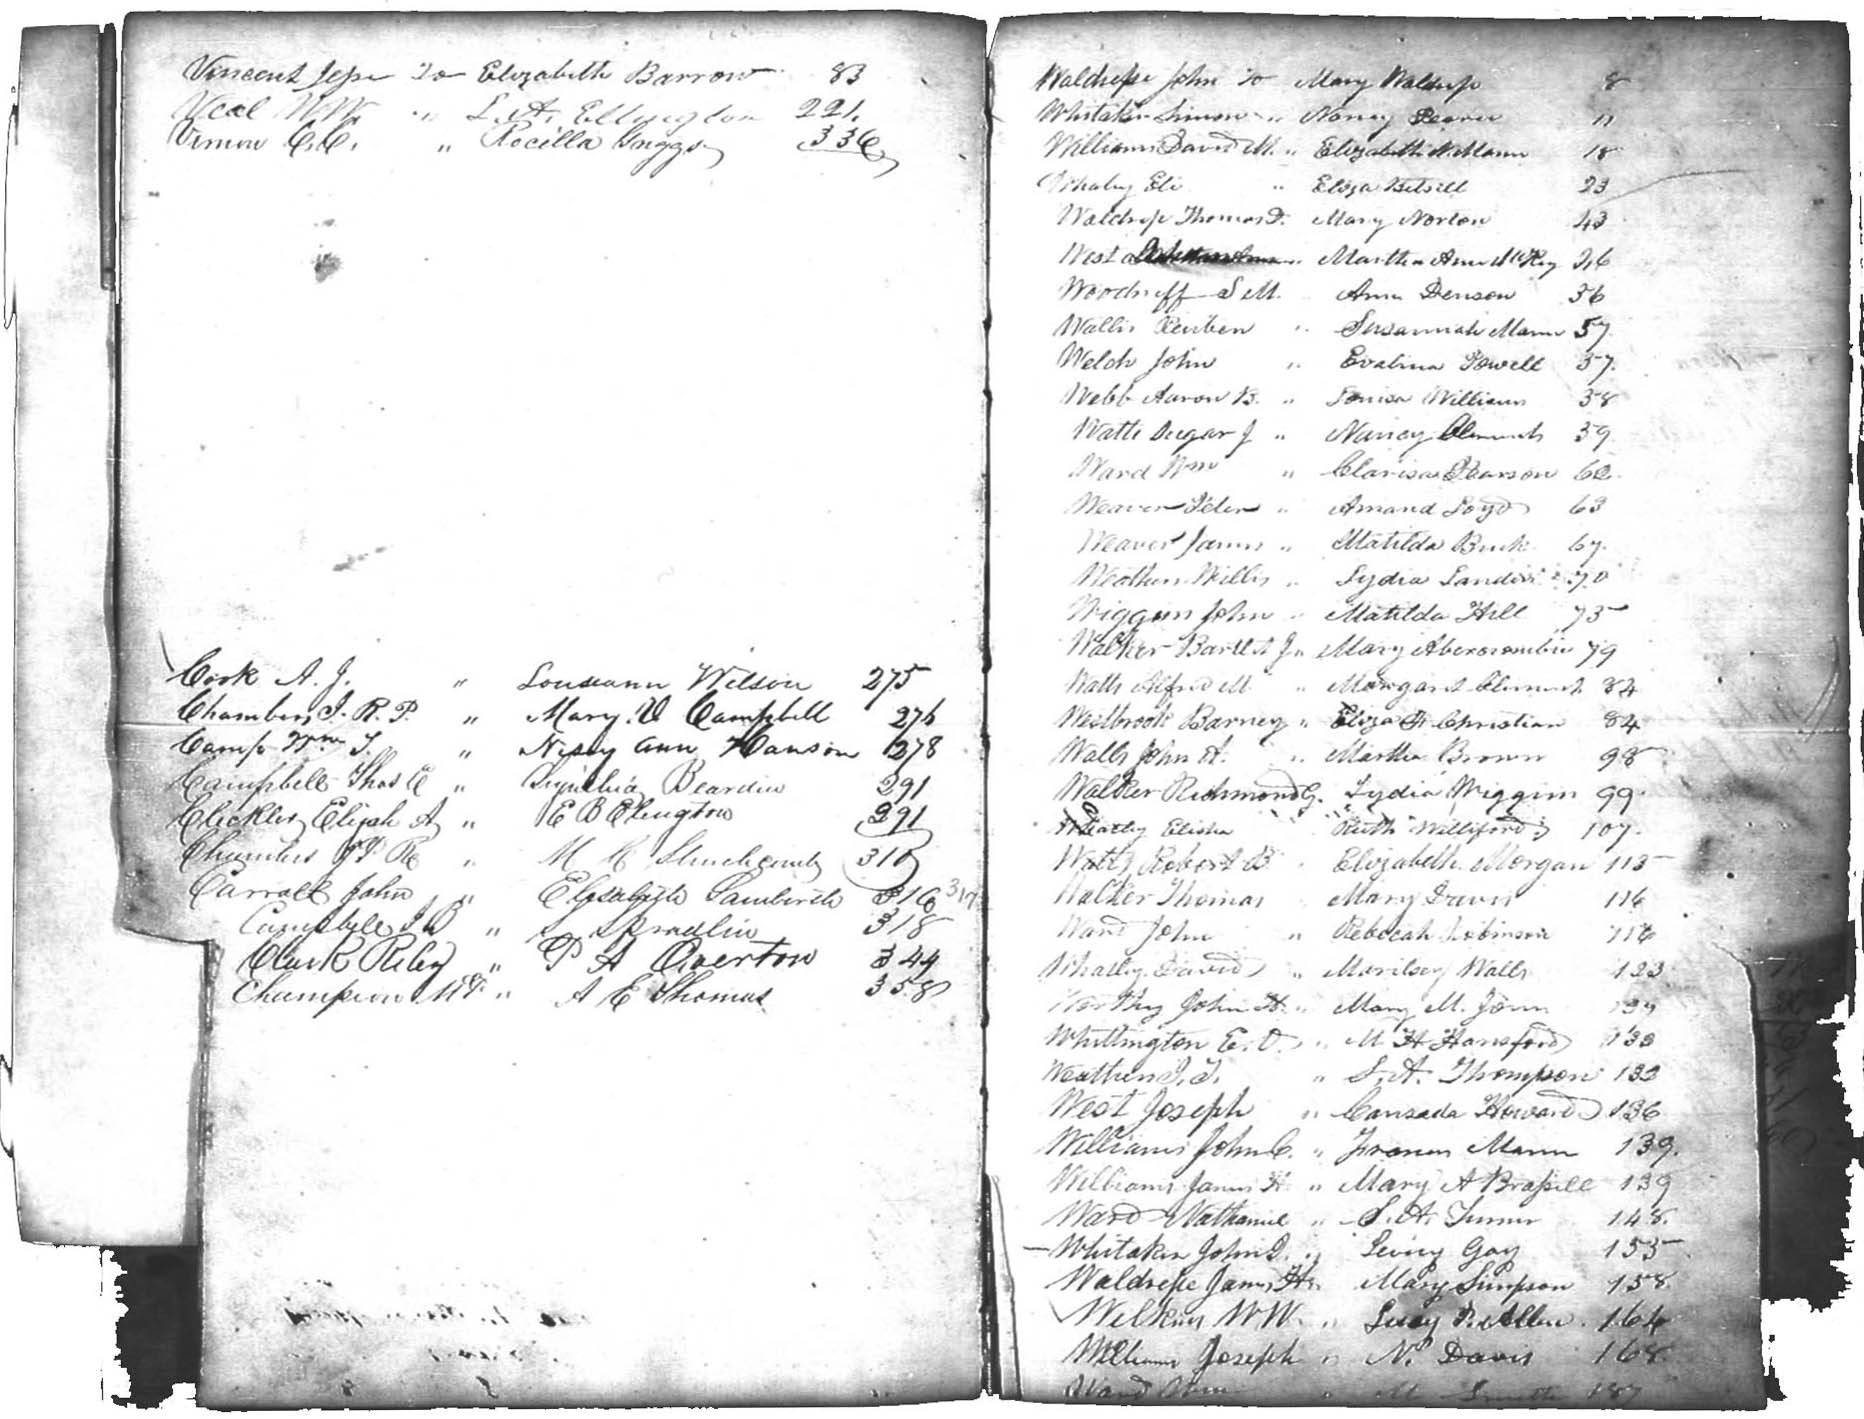 Vincent Jesse To Elizabeth Barrow 83
Veal W.W. " L.A. Ellington 221.
Vernon C.C. " Rocilla Griggs 336
Cook A. J. " Lousann Wilson 275
Chambers J. R. P. " Mary. V Campbell 276
Camp Wm T. " Nisey Ann Hanson 278
Campbell Thos C " Cynthia Bearden 291
Clickler, Elijah A, " E B Elington 291
Chambers " M H Stinchcomb 310
Carroll John " Elizabeth Lamberth 316 317
Campbell J B " 318
Clark Riley " P A Overton 344
Champion " A E Thomas 358
Waldrope John To Mary Waldrop 8
Whitaker Simon " Nancy 11
Williams David M. " Elizabeth N Mann 18
Whaley Eli " Eliza Betsill 23
Waldrop Thomas F. Mary Norton 43
West Martha Ann McKey 26
Woodruff S M. Ann Denson 36
Wallis Reuben " Susannah Mann 57.
Welch John " Evalina Powell 37.
Webb Aaron B. " Louisa Williams 38
Watts Dugar J " Nancy Clements 39
Ward Wm " Clarisa Pearson 62.
Weaver Peter " Amand Loyd 63
Weaver James " Matilda Buck 67.
Weathers Willis " Lydia 70
Wiggins John " Matilda Hill 75
Walker Bartlet J " Mary Abercrombie 79
Watts Alfred M. " Margaret Clements 84
Westbrook Barney " Eliza F. Christian 84
Walls John A. " Martha Brown 98
Walker Richmond G. Lydia Wiggins 99
Whatley Elisha " Ruth Williford 107.
Watts Robert B " Elizabeth Morgan 115
Walker Thomas Mary Davis 116
Ward John " Rebecah Robinson 116
Whatley David " Marilsey Walls 123
Worthy John H. " Mary M. Jones 134
Whittington E. D. " M H Hansford 133
Weathers J. T. " S. A. Thompson 133
West Joseph " Cansada Howard 136
Williams John C. " Frances Mann 139.
Williams James H " Mary A Brassill 139
Ward Nathaniel " S. A. Turner 148.
Whitaker John J. " Leviey Gay 155
Waldrope James H. Mary Simpson 158
Wilkins W. W. " Lucy P. Allen 164
Williams Joseph " N. Davis 168.
Ward Wm " M Smith 187